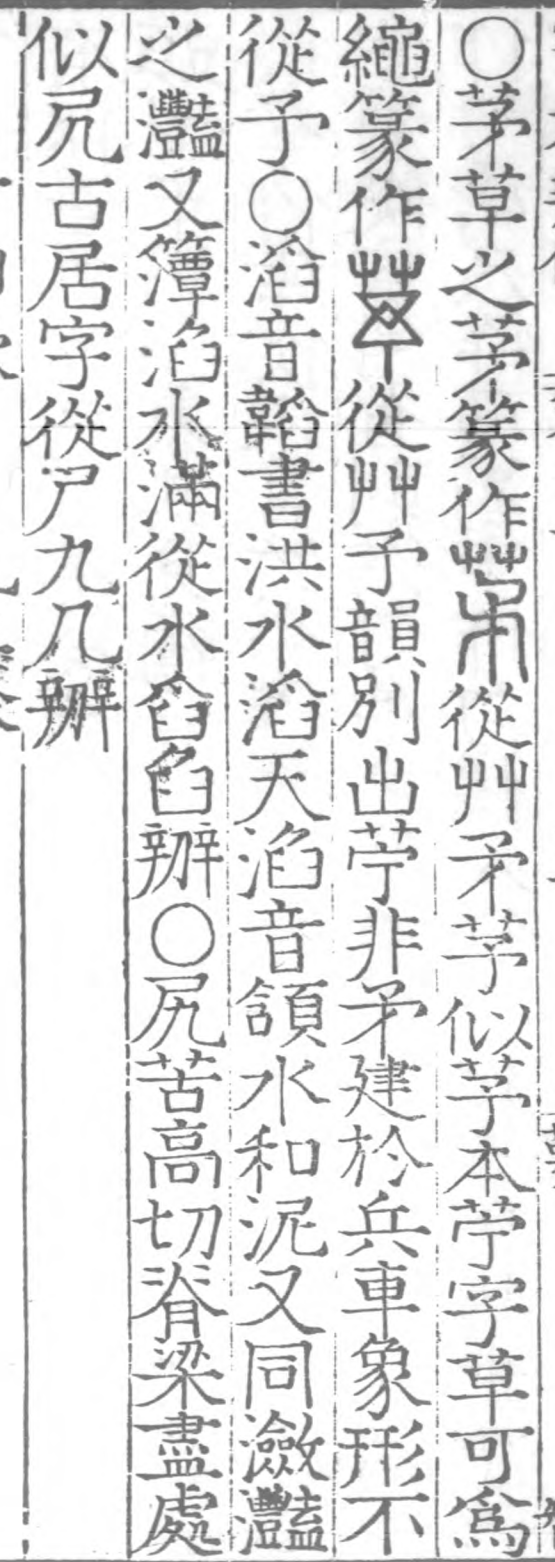 ○茅草之茅篆作從艸矛芧似芧本苧字草可爲
繩篆作從艸予韻別出苧非矛建於兵車象形不
從予○滔音韜書洪水滔天淊音頷水和泥又同瀲灩
之灩又簟淊水滿從水舀臽辦○尻苦高切脊梁盡處
似尻古居字從尸九几辦